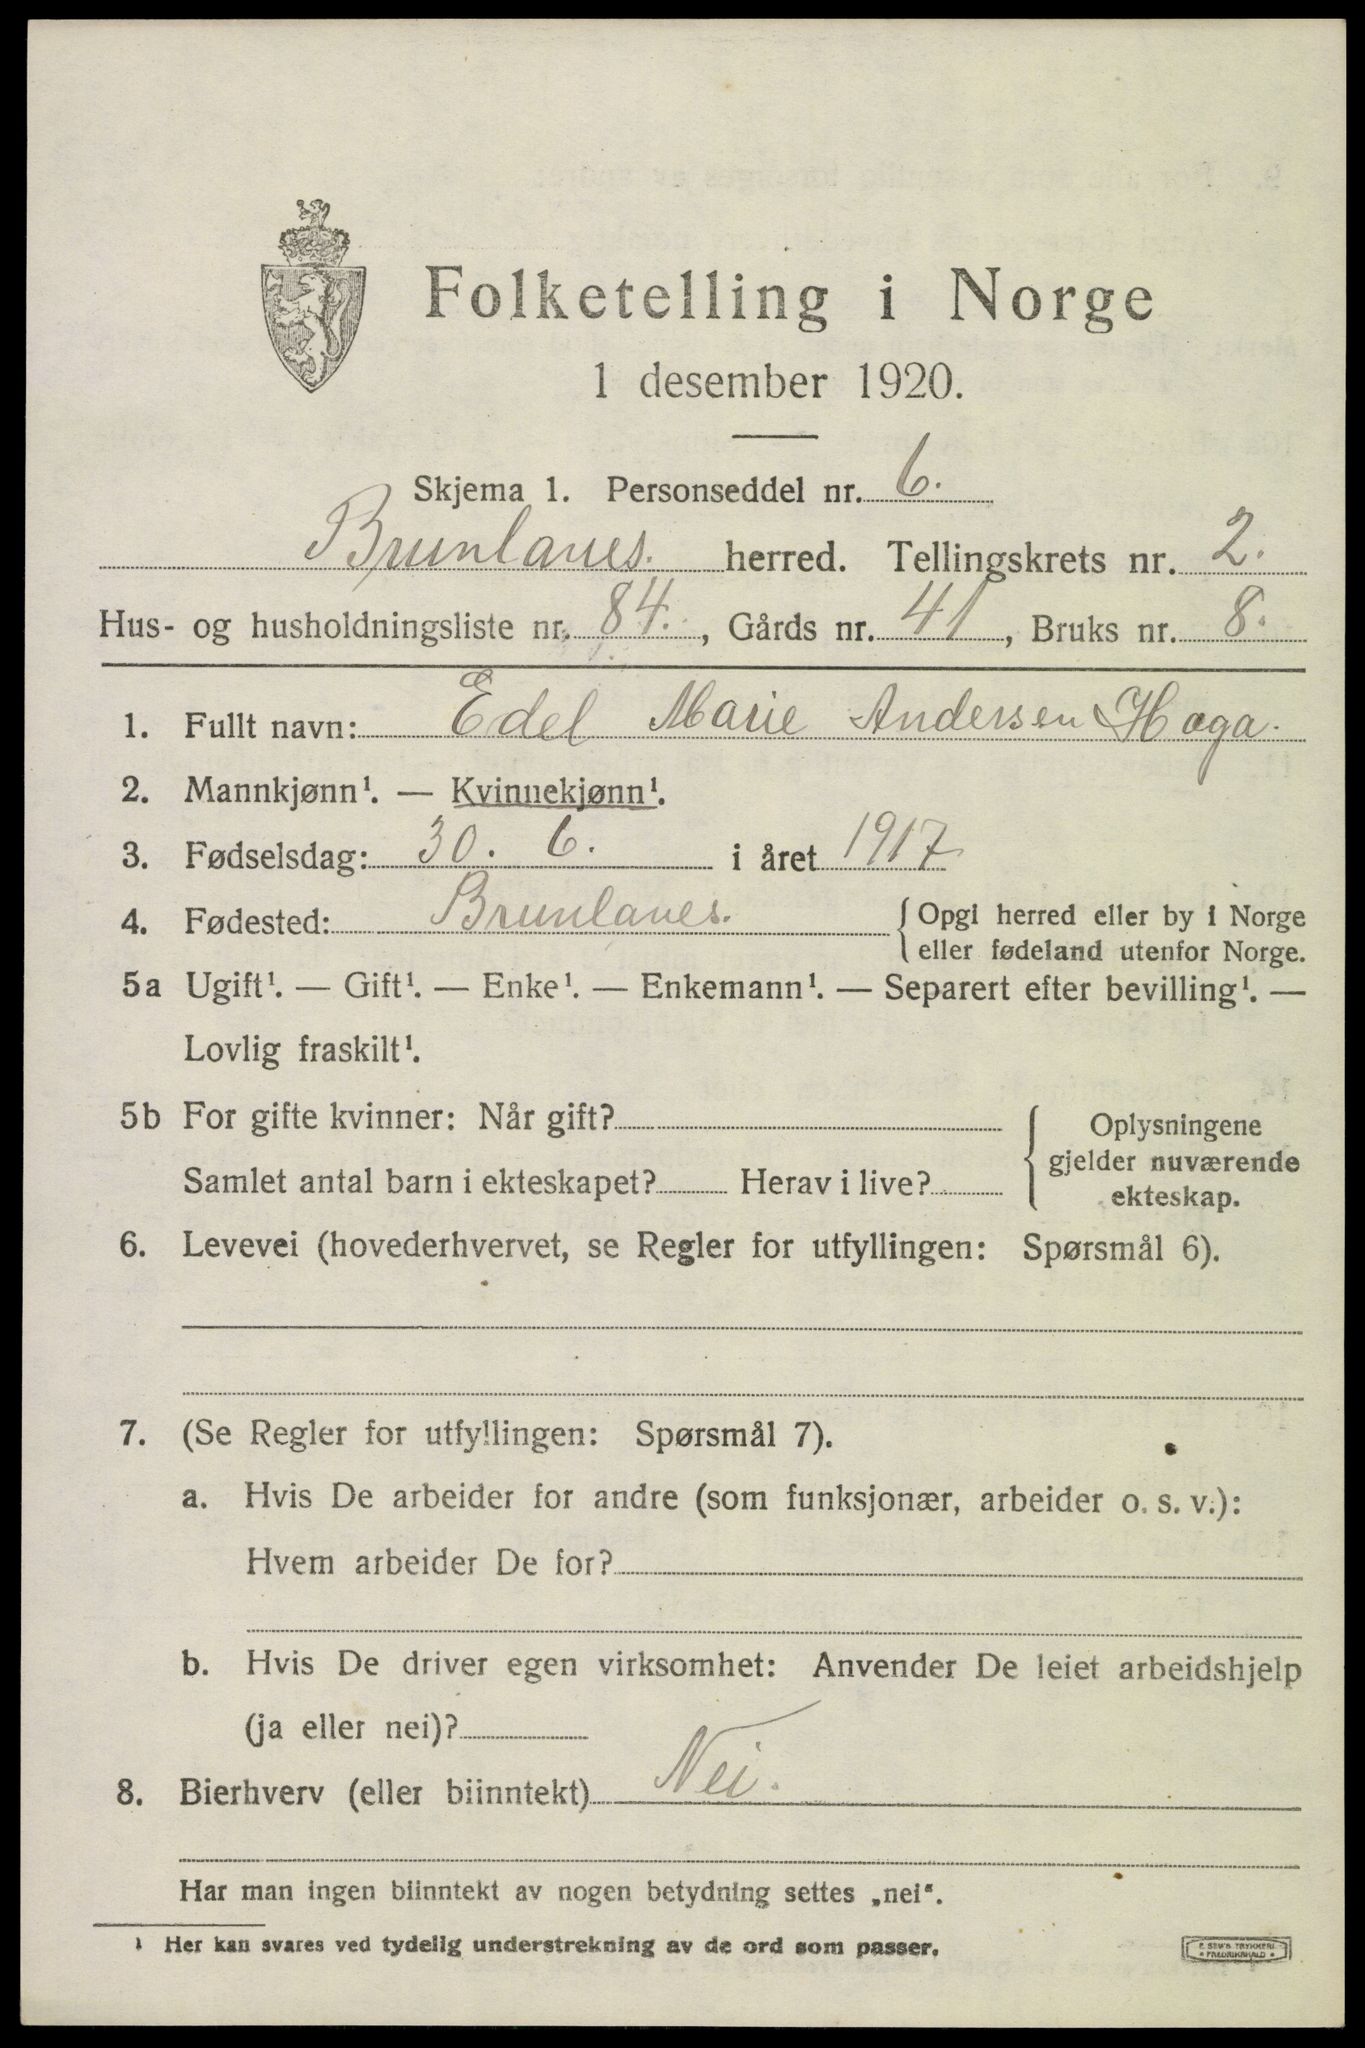 Folketelling i Norge
1 desember 1920.
Skjema 1. Personseddel nr. 6.
Brunlanes. herred. Tellingskrets nr. 2.
Hus- og husholdningsliste nr. 84., Gårds nr. 41, Bruks nr. 8.
1. Fullt navn: Edel Marie Andersen Haga.
2. Mannkjønn¹. — Kvinnekjønn¹.
3. Fødselsdag: 30. 6. i året 1917
4. Fødested: Brunlanes. { Opgi herred eller by i Norge
eller fødeland utenfor Norge.
5a Ugift¹. — Gift¹. — Enke¹. — Enkemann¹. — Separert efter bevilling¹. —
Lovlig fraskilt¹.
5b For gifte kvinner: Når gift? { Oplysningene
gjelder nuværende
ekteskap.
Samlet antal barn i ekteskapet? Herav i live?
6. Levevei (hovederhvervet, se Regler for utfyllingen: Spørsmål 6).
7. (Se Regler for utfyllingen: Spørsmål 7).
a. Hvis De arbeider for andre (som funksjonær, arbeider o. s. v.):
Hvem arbeider De for?
b. Hvis De driver egen virksomhet: Anvender De leiet arbeidshjelp
(ja eller nei)?
8. Bierhverv (eller biinntekt) Nei.
Har man ingen biinntekt av nogen betydning settes „nei“.
¹ Her kan svares ved tydelig understrekning av de ord som passer.
FREDRIKSHALD